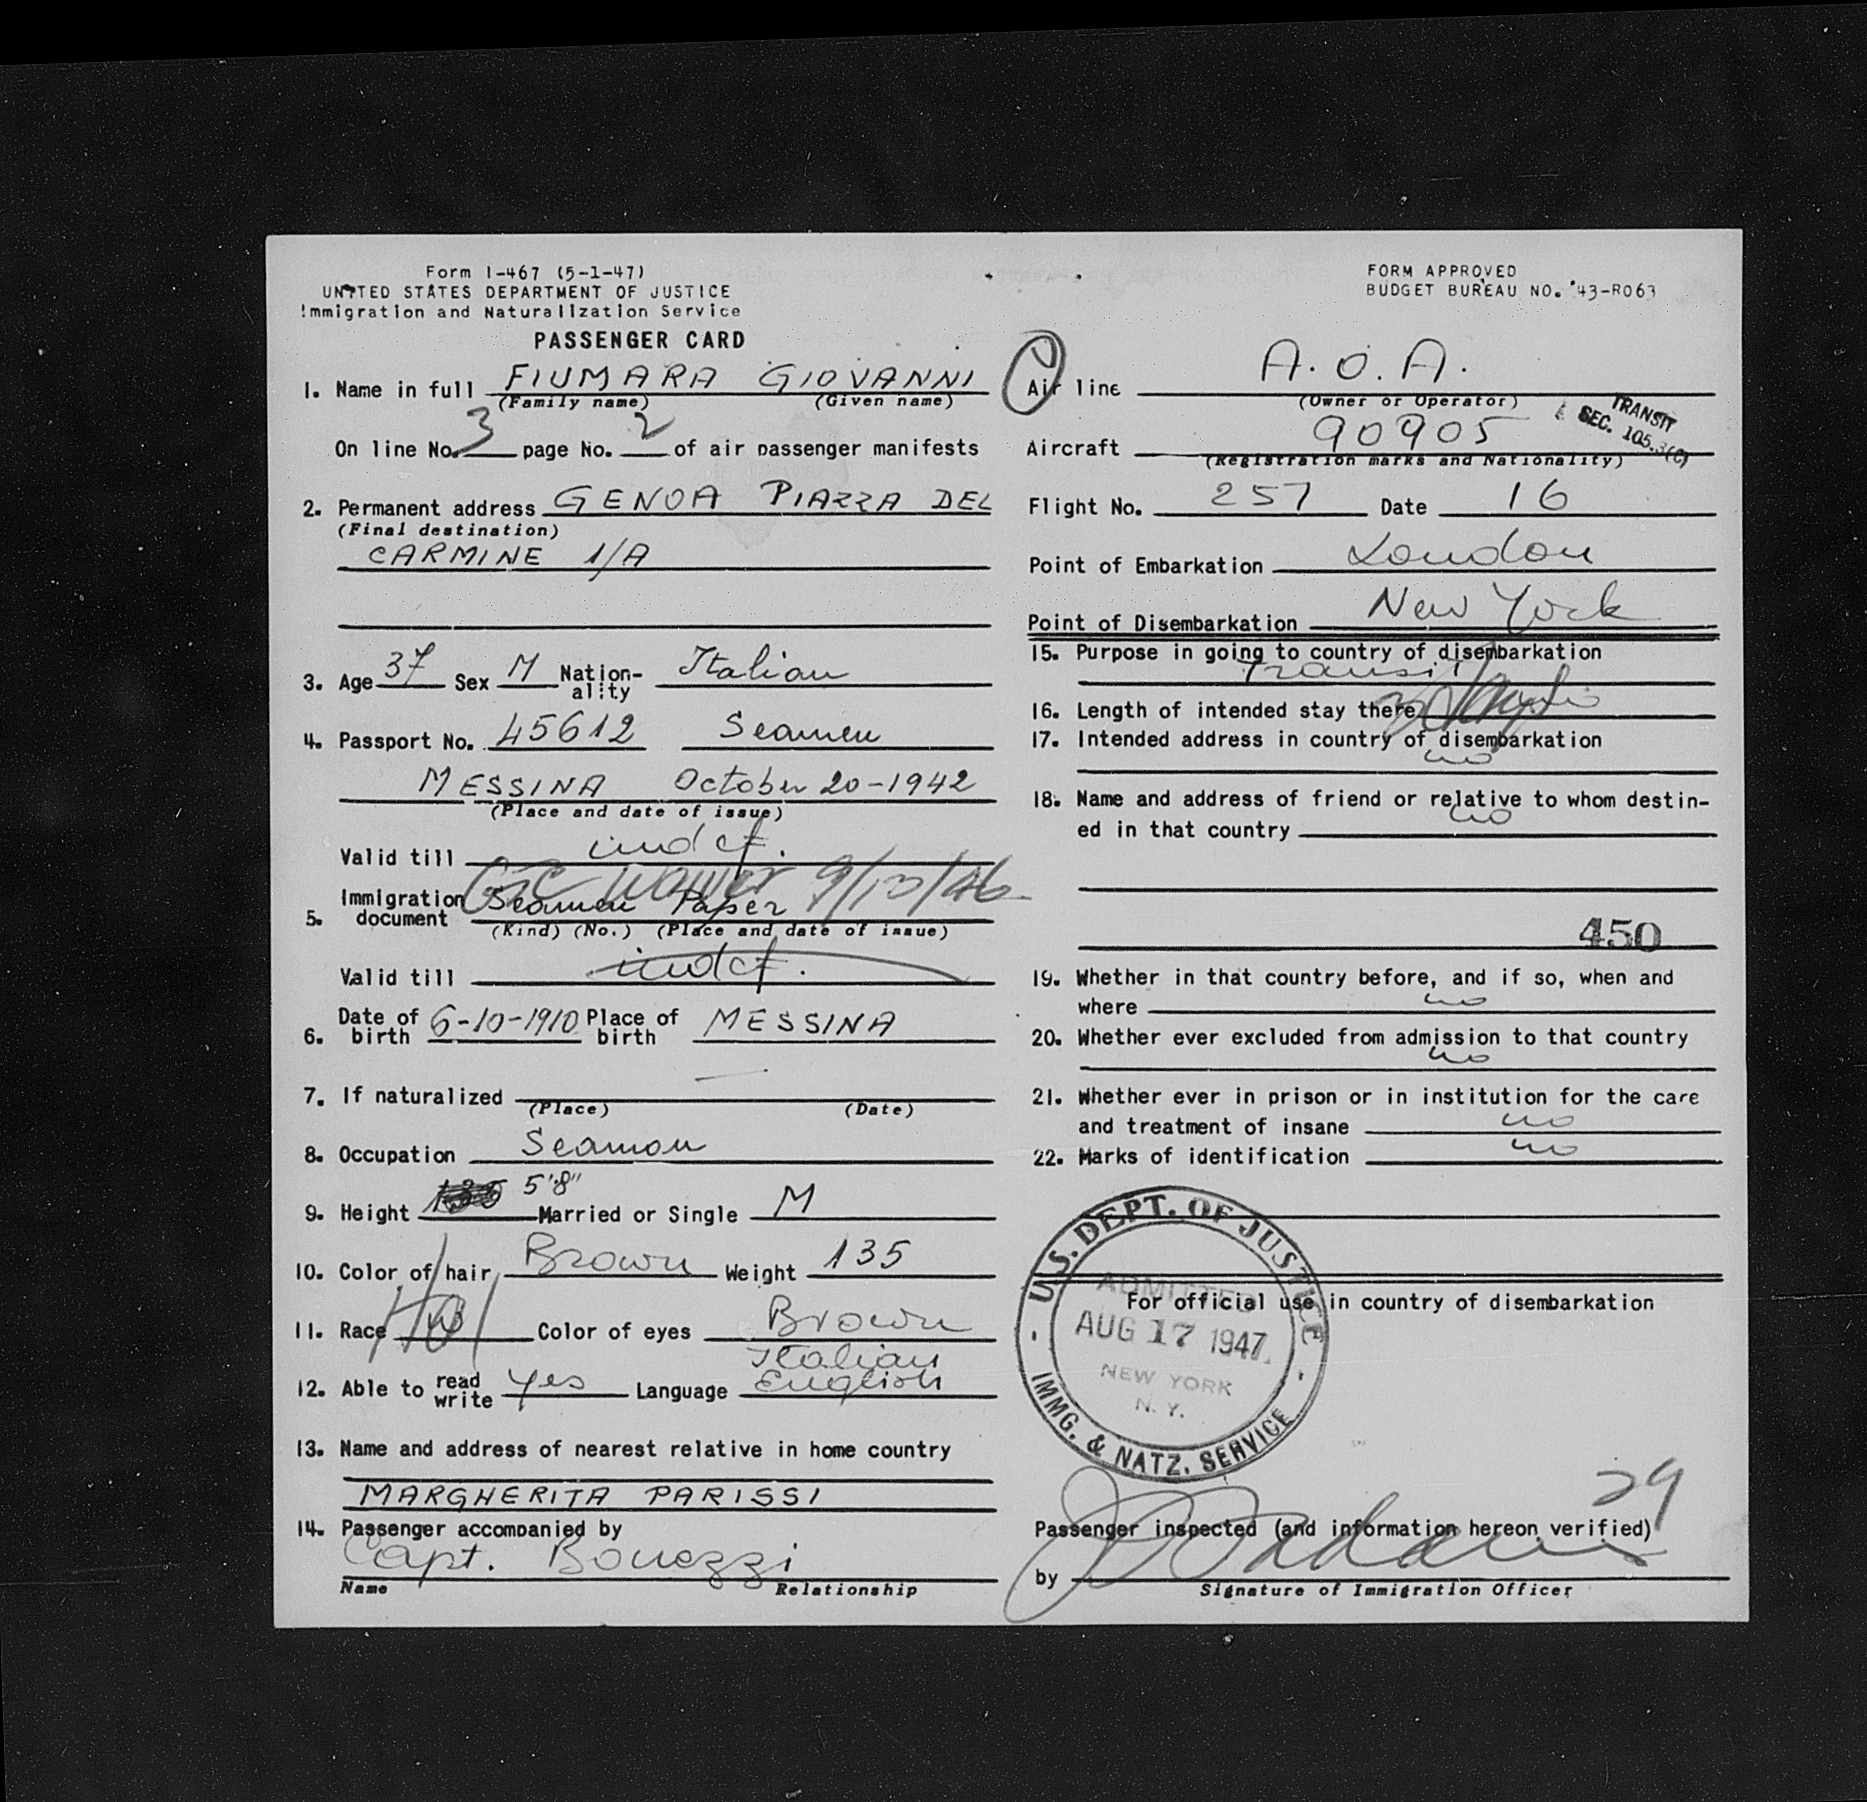 Form I-467 (5-1-47)
UNITED STATES DEPARTMENT OF JUSTICE
Immigration and Naturalization Service
PASSENGER CARD
1. Name in full FIUMARA GIOVANNI
(Family name) (Given name)
On line No. 3 page No. 2 of air passenger manifests
2. Permanent address GENOA PIAZZA DEL
(Final destination)
CARMINE 1/A
3. Age 37 Sex M Nation-ality Italian
4. Passport No. 45612 Seamen
MESSINA October 20-1942
(Place and date of issue)
Valid till indef.
waiver 9/13/46
5. Immigration document Seamen Paper
(Kind) (No.) (Place and date of issue)
Valid till indef.
6. Date of birth 6-10-1910 Place of birth MESSINA
7. If naturalized —
(Place) (Date)
8. Occupation Seamon
9. Height 5'8" Married or Single M
10. Color of hair Brown Weight 135
11. Race Color of eyes Brown
12. Able to read write yes Language Italian English
13. Name and address of nearest relative in home country
MARGHERITA PARISSI
14. Passenger accompanied by
Capt. Bonezzi
Name Relationship
FORM APPROVED
BUDGET BUREAU NO. 43-R063
Air line A.O.A.
(Owner or Operator)
TRANSIT
SEC. 105.3(C)
Aircraft 90905
(Registration marks and Nationality)
Flight No. 257 Date 16
Point of Embarkation London
Point of Disembarkation New York
15. Purpose in going to country of disembarkation
Transit
16. Length of intended stay there
17. Intended address in country of disembarkation
no
18. Name and address of friend or relative to whom destin-
ed in that country no
450
19. Whether in that country before, and if so, when and
where no
20. Whether ever excluded from admission to that country
no
21. Whether ever in prison or in institution for the care
and treatment of insane no
22. Marks of identification no
For official use in country of disembarkation
U.S. DEPT. OF JUSTICE
ADMITTED
AUG 17 1947
NEW YORK
N.Y.
IMMG. & NATZ. SERVICE
29
Passenger inspected (and information hereon verified)
by
Signature of Immigration Officer